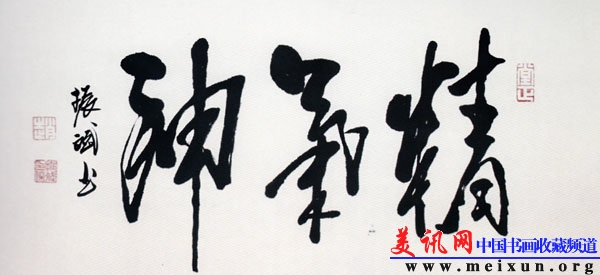 精氣神
振斌书
美讯网 中国书画收藏频道
www.meixun.org